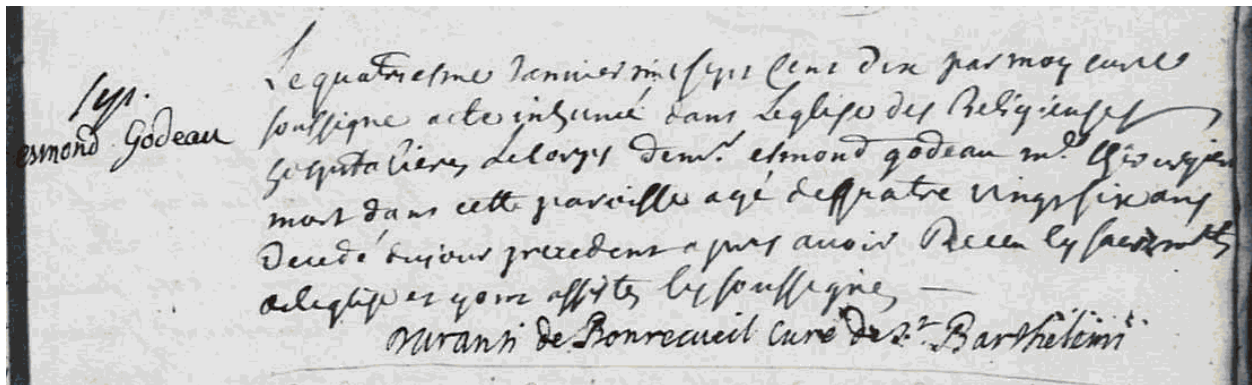 Sep.
esmond Godeau
Le quatriesme Janvier mil sept cent dix par moy curé
soussigne a ete inhumé dans Leglise des Religieuses
hospitalieres Le corps de mr. esmond godeau me. Chirurgien
mort dans cette paroisse agé de quatre vingt six ans
Decedé du jour precedent apres avoir Receu les sacrements
de leglise et y ont assistés les soussignes
Duranti de Bonrecueil curé de St. Barthelemi